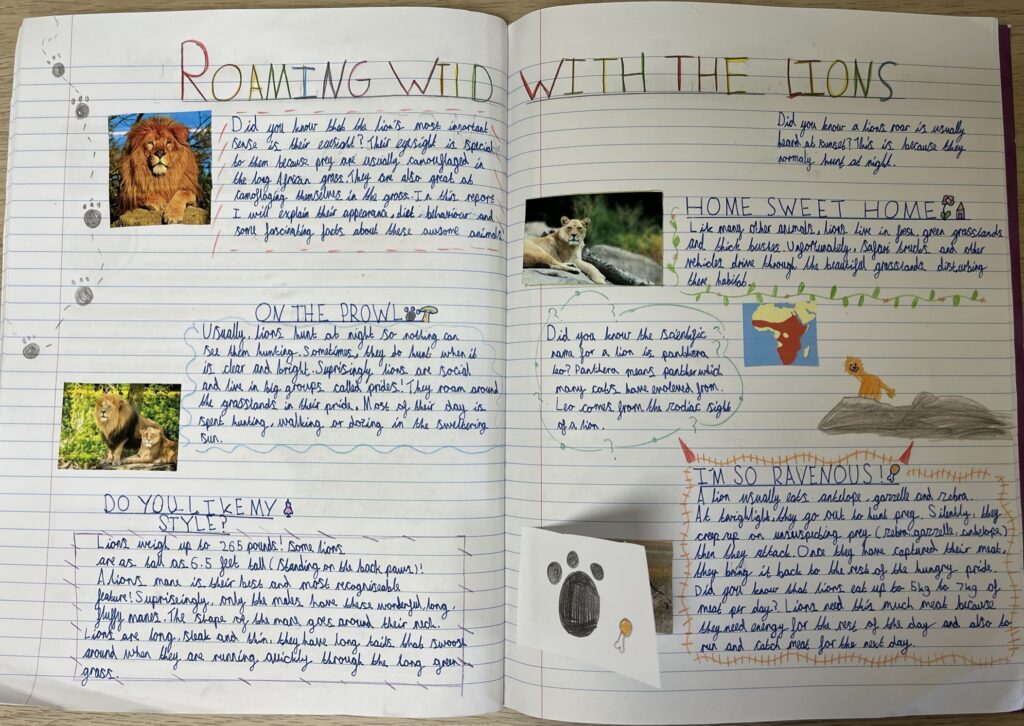 ROAMING WILD WITH THE LIONS
Did you know that the lion's most important
sense is their eyesight? Their eyesight is special
to them because prey are usually camouflaged in
the long African grass. They are also great at
camoflaging themselves in the grass. In this report
I will explain their appearance, diet, behaviour and
some fascinating facts about these awsome animals
ON THE PROWL
Usually, lions hunt at night so nothing can
see them hunting. Sometimes, they do hunt when it
is clear and bright. Suprisingly lions are social
and live in big groups called prides! They roam around
the grasslands in their pride. Most of their day is
spent hunting, walking or dozing in the sweltering
sun.
DO YOU LIKE MY
STYLE?
Lions weigh up to 265 pounds! Some lions
are as tall as 6.5 feet tall (standing on the back paws)!
A lions mane is their best and most recogniseable
feature! Supriseingly, only the males have these wonderful, long,
fluffy manes. The shape of the mane goes around their neck.
Lions are long, sleak and thin, they have long tails that swoosh
around when they are running quickly through the long green
grass.
Did you know a lions roar is usually
heard at sunset? This is because they
normaly hunt at night.
HOME SWEET HOME
Like many other animals, lions live in fresh, green grasslands
and thick bushes. Unfortunately, safari trucks and other
vehicles drive through the beautiful grasslands disturbing
there habitat.
Did you know the scientific
name for a lion is panthera
leo? Panthera means panther which
many cats have evoloved from.
Leo comes from the zodiac sight
of a lion.
I'M SO RAVENOUS!
A lion usually eats antelope, gazzelle and zebra.
At twighlight, they go out to hunt prey. Silently, they
creep up on unsuspecting prey (zebra, gazzelle, antelope)
then they attack. Once they have captured their meat,
they bring it back to the rest of the hungry pride.
Did you know that lions eat up to 5kg to 7kg of
meat per day? Lions need this much meat because
they need energy for the rest of the day and also to
run and catch meat for the next day.